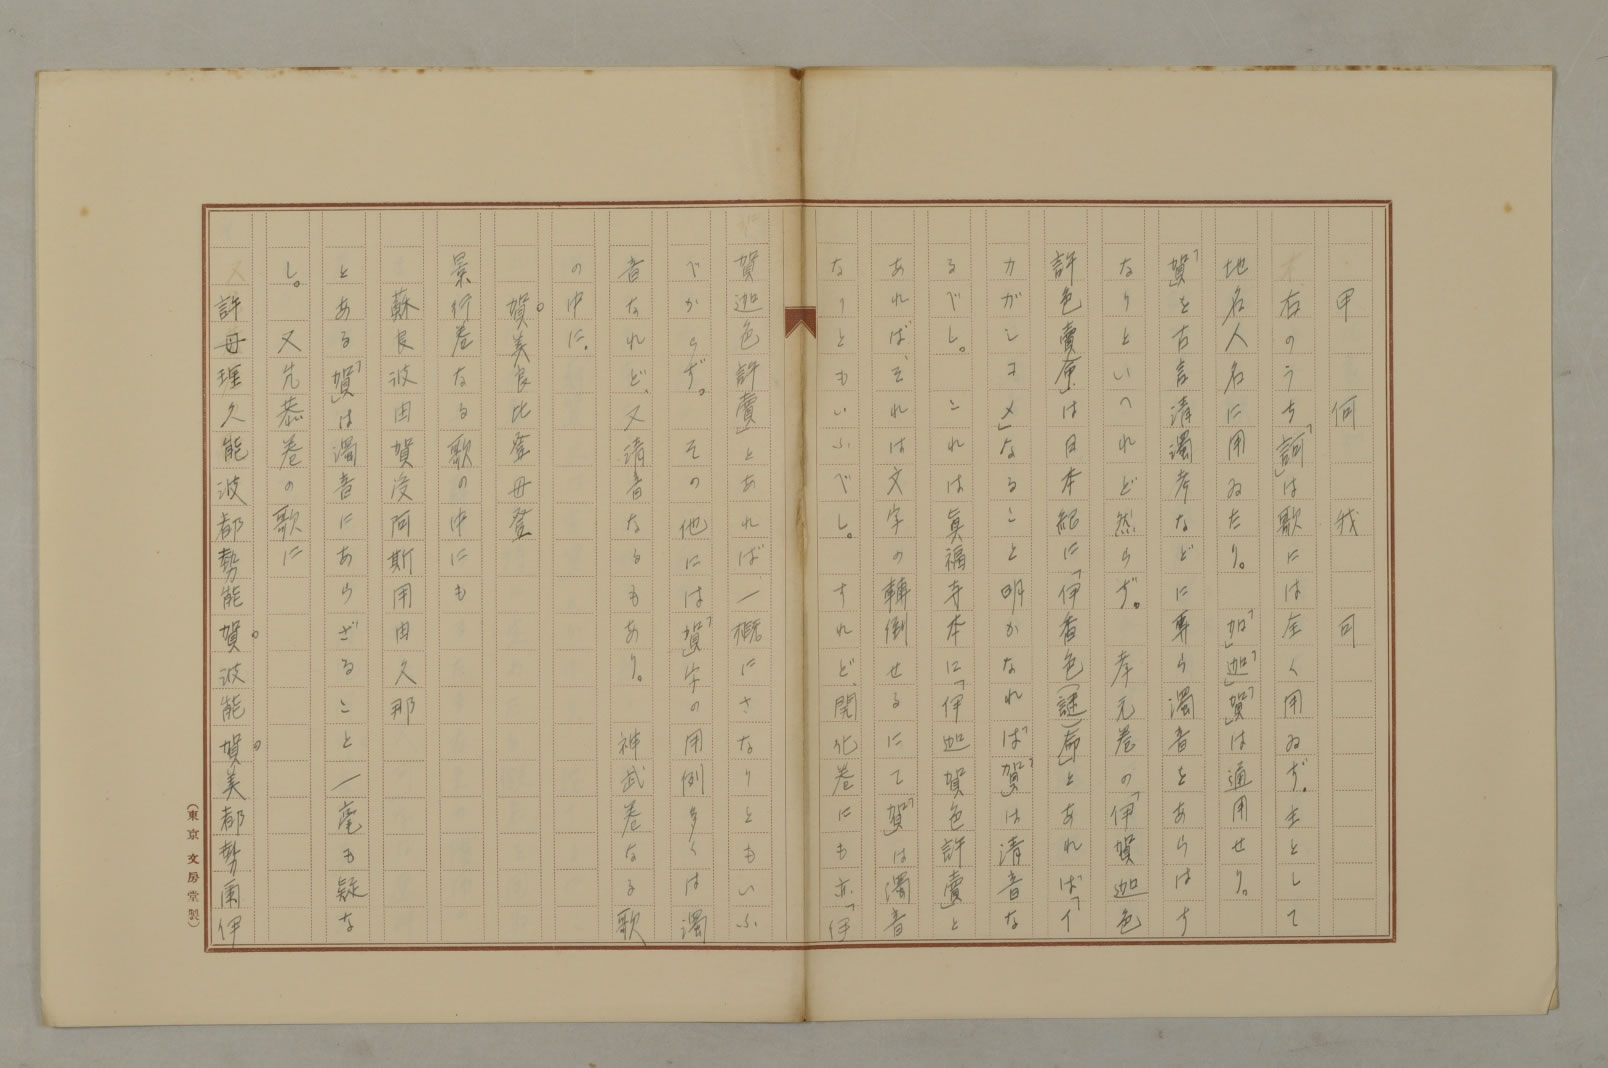 甲 何 我 可
右のうち「訶」は歌には全く用ゐず。主として
地名人名に用ゐたり。「加」「迦」「賀」は通用せり。
「賀」を古言清濁考などに專ら濁音をあらはす
なりといへれど然らず。孝元卷の「伊賀迦色
許色賣」は日本紀に「伊香色謎命」とあれば「イ
カガシコメ」なること明かなれば「賀」は清音な
るべし。これは眞福寺本に「伊迦賀色許賣」と
あれば、それは文字の轉倒せるにて「賀」は濁音
なりともいふべし。すれど、開化卷にも亦「伊
賀迦色許賣」とあれば一概にさなりともいふ
べからず。その他には「賀」字の用例多くは濁
音なれど、又清音なるもあり。神武卷なる歌
の中に。
賀美良比登母登
景行卷なる歌の中にも
蘇良波由賀受阿斯用由久那
とある「賀」は濁音にあらざること一毫も疑な
し。又允恭卷の歌に
許母理久能波都勢能賀波能賀美都勢爾伊
(東京 文房堂製)